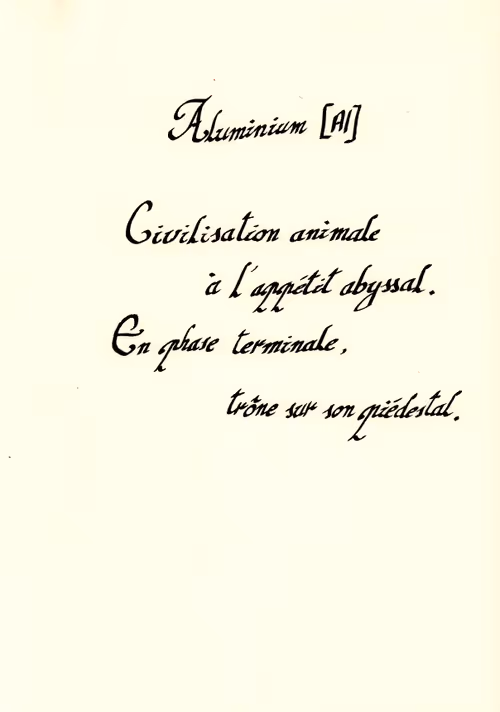 Aluminium [Al]
Civilisation animale
à l'appétit abyssal.
En phase terminale,
trône sur son piédestal.